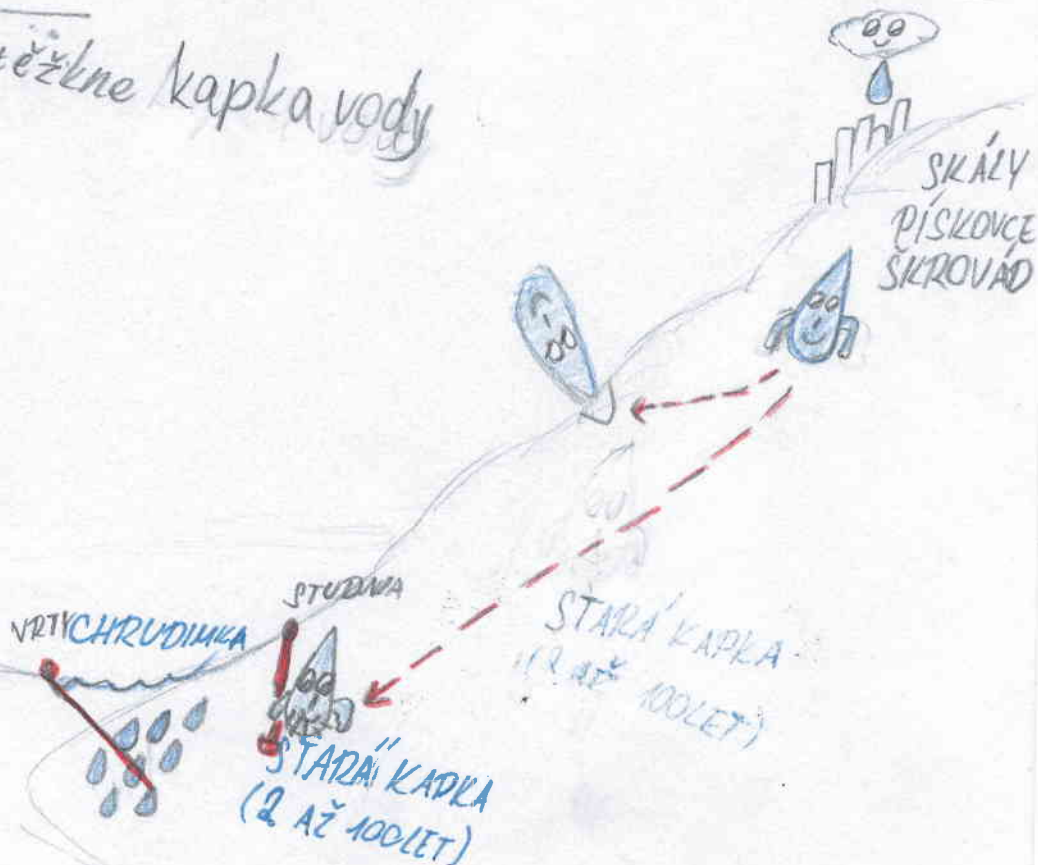 těžkne kapka vody
SKÁLY
PÍSKOVCE
ŠKROVÁD
STUDNA
VRTY CHRUDIMKA
STARÁ KAPKA
(2 AŽ 100LET)
STARÁ KAPKA
(2 AŽ 100LET)